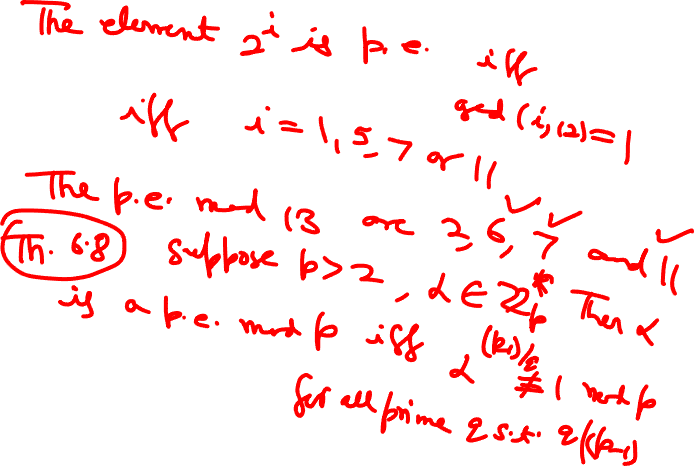 The element 2^i is p.e. iff
gcd(i,12)=1
iff i=1,5,7 or 11
The p.e. mod 13 are 2,6,7 and 11
Th. 6.8 suppose p>2, α ∈ ℤ_p^* Then α
is a p.e. mod p iff α^{(p-1)/q} ≢ 1 mod p
for all prime q s.t. q|(p-1)